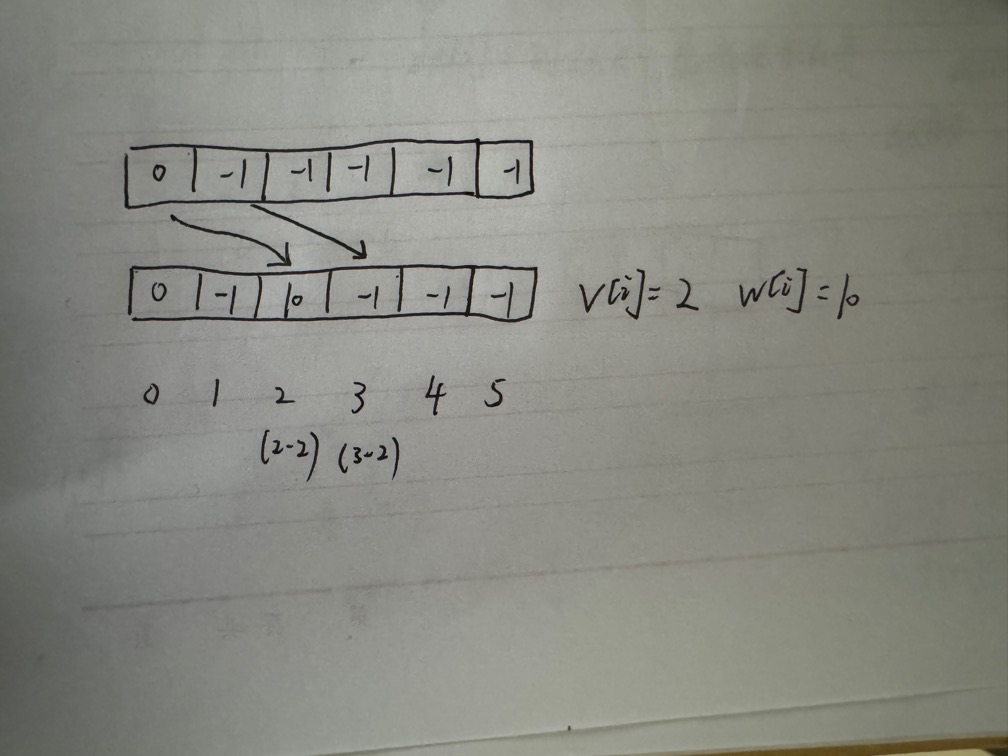 0 -1 -1 -1 -1 -1
0 -1 10 -1 -1 -1 v[i]=2 w[i]=10
0 1 2 3 4 5
(2-2) (3-2)